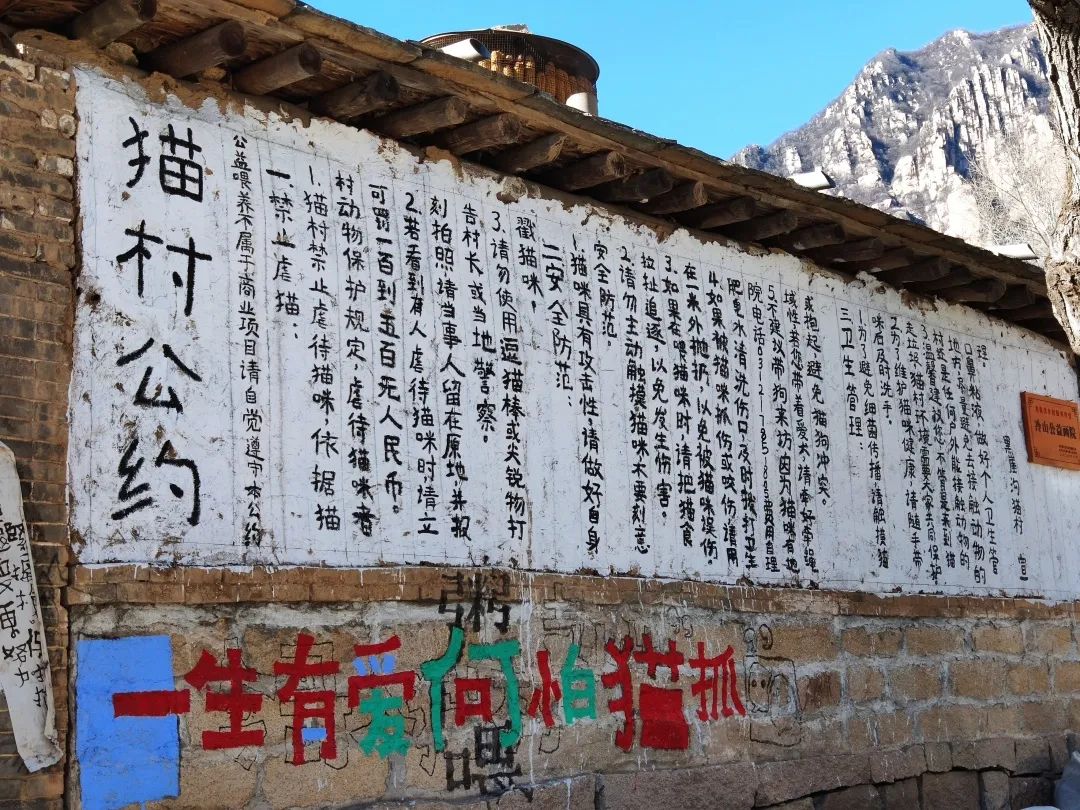 猫村公约
公益喂养不属于商业项目请自觉遵守本公约
一.禁止虐猫:
1.猫村禁止虐待猫咪,依据猫
村动物保护规定,虐待猫咪者
可罚一百到五百元人民币。
2.若看到有人虐待猫咪时请立
刻拍照请当事人留在原地,并报
告村长或当地警察。
3.请勿使用逗猫棒或尖锐物打
戳猫咪,
二安全防范:
1.猫咪具有攻击性,请做好自身
安全防范。
2.请勿主动触摸猫咪不要刻意
拉扯追逐,以免发生伤害。
3.如果在喂猫咪时,请把猫食
在一米外抛扔,以免被猫咪误伤
4.如果被猫咪抓伤或咬伤请用
肥皂水清洗伤口,及时拨打卫生
院电话 费用自理
5.不建议带狗来访因为猫咪有地
域性若您带着爱犬请牵好牵绳
或抱起避免猫狗冲突。
三卫生管理:
1.为了避免细菌传播请触摸猫
咪后及时洗手。
2.为了维护猫咪健康,请随手带
走垃圾猫村环境需要大家共同保护
3.温馨建议您不管是来到猫
村或是任何户外能接触动物的
地方,尽量避免去接触动物的
口鼻粘液,做好个人卫生管
理。
黑崖沟猫村 宣
公益画院
一生有爱何怕猫抓